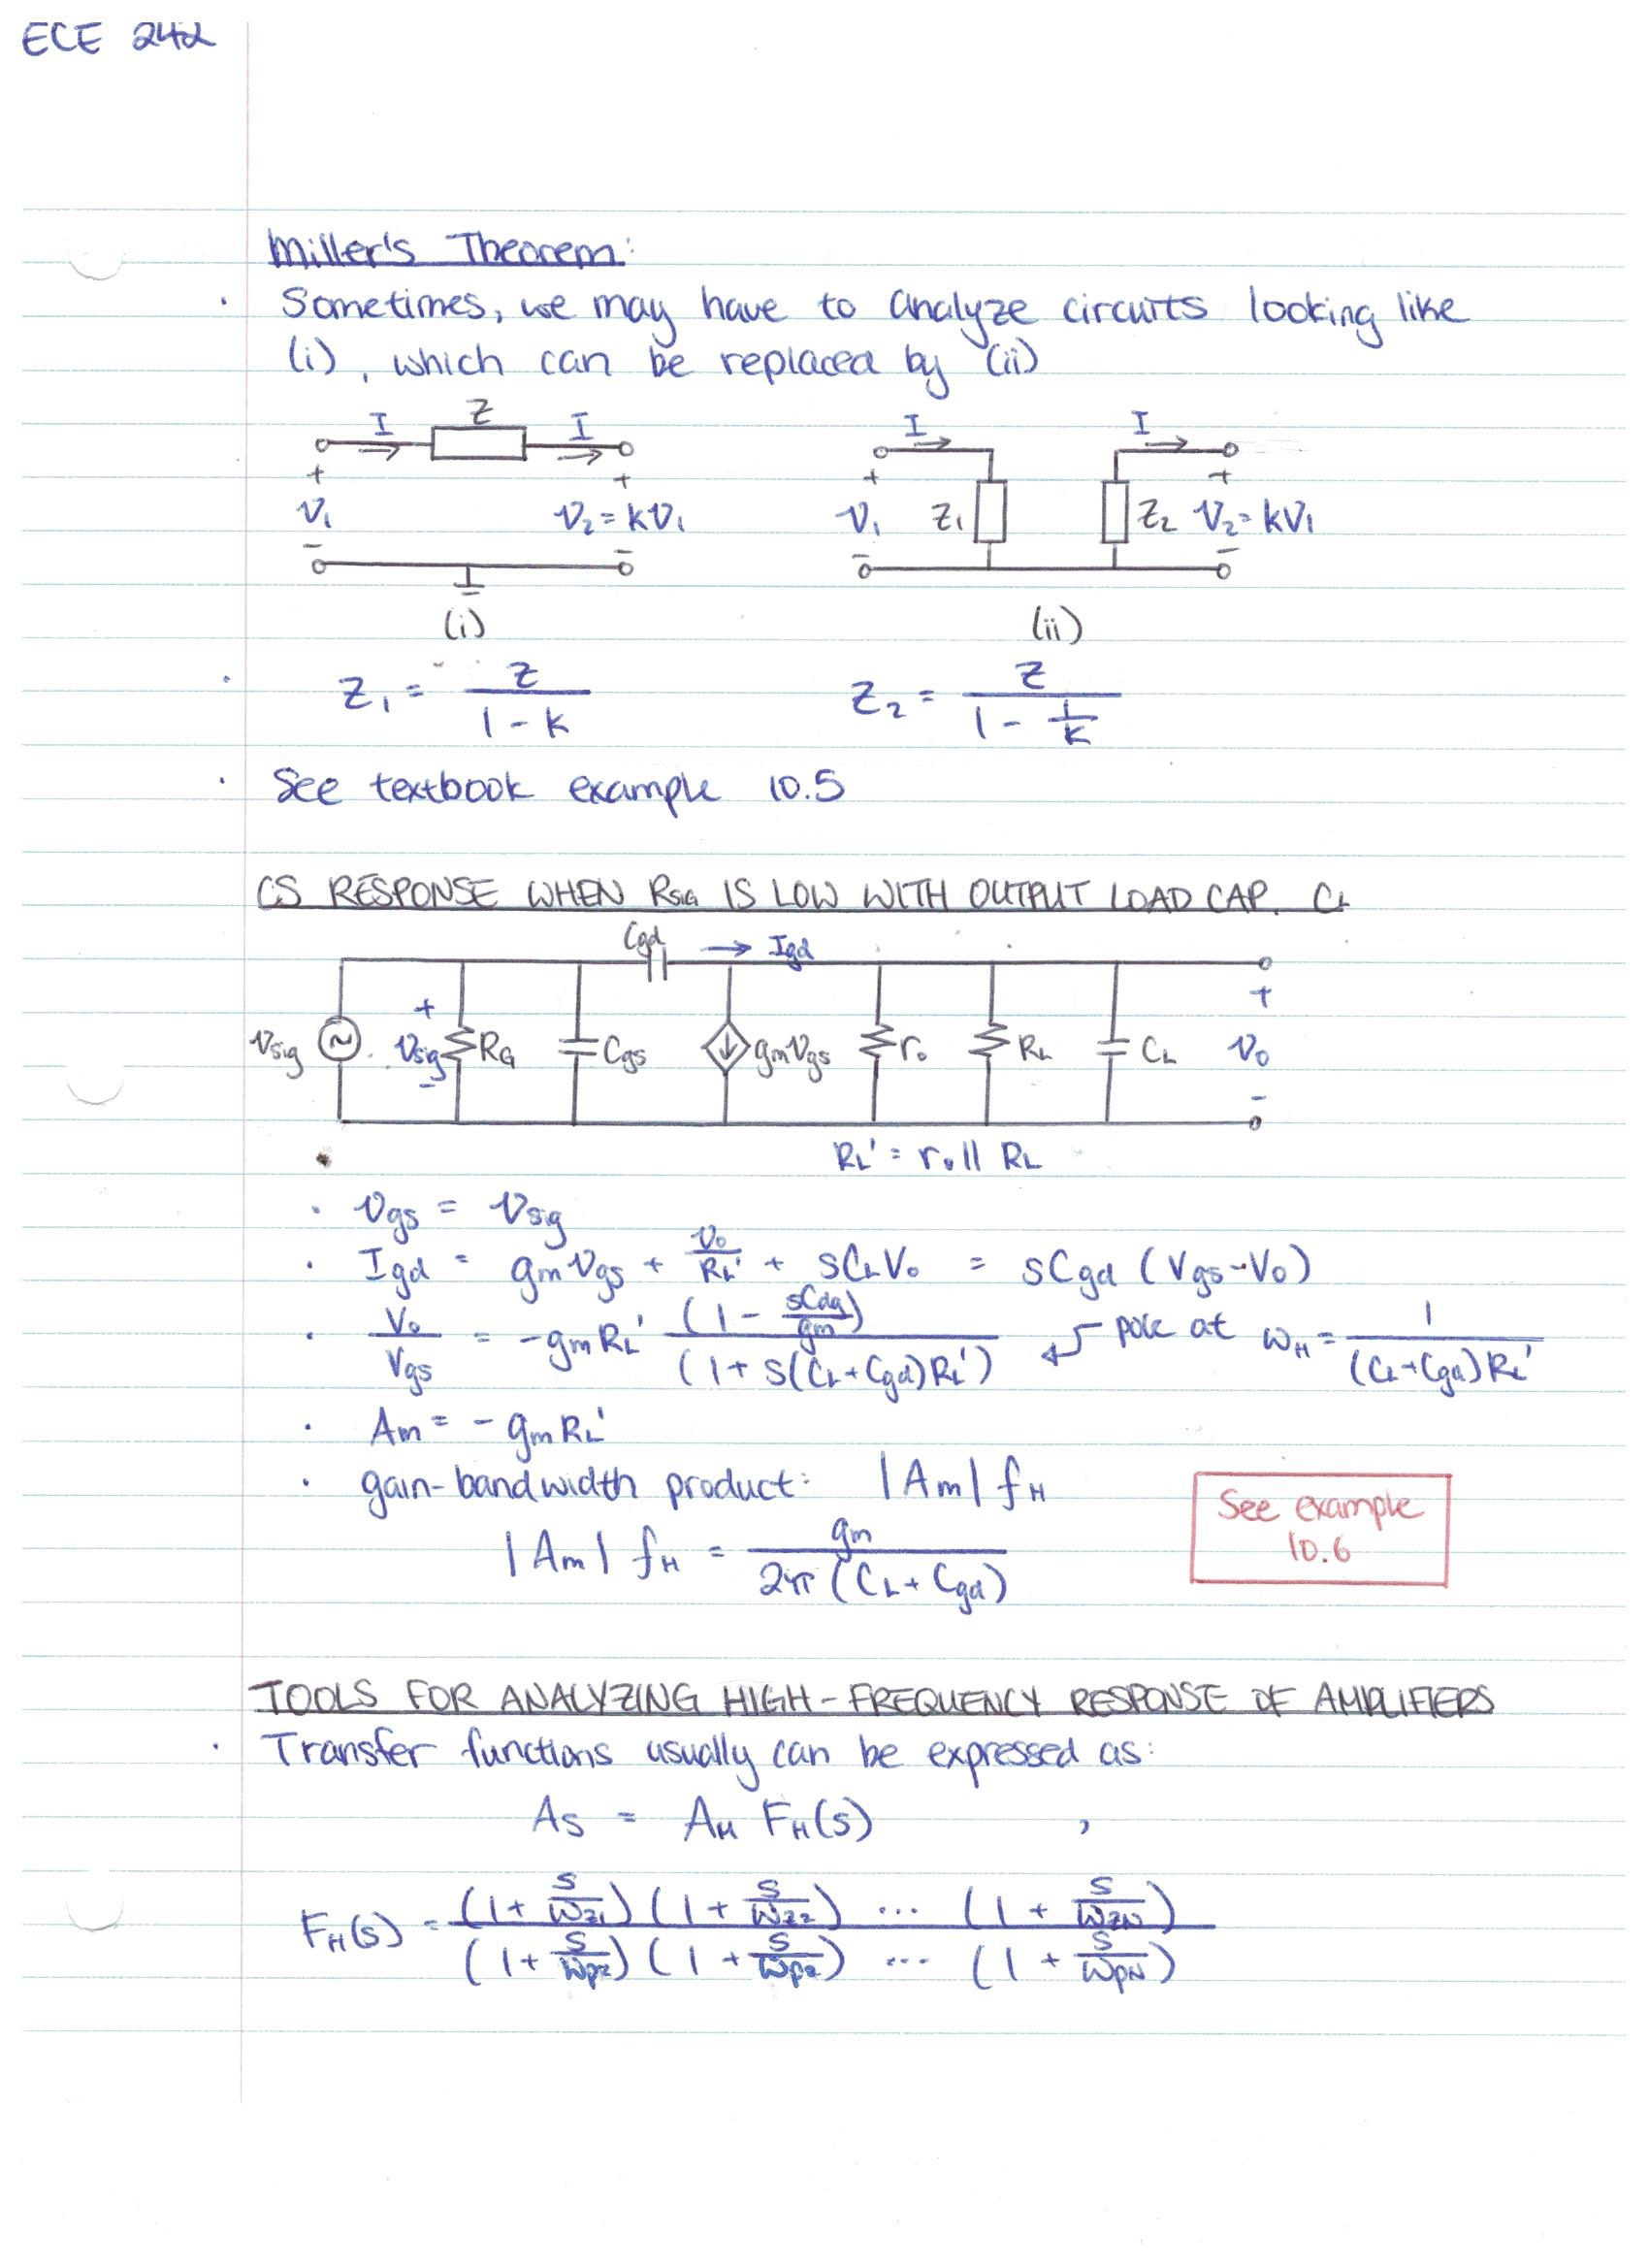 ECE 242
Miller's Theorem:
· Sometimes, we may have to analyze circuits looking like
(i), which can be replaced by (ii)
I Z I I I
+ + + +
V₁ V₂ = kV₁ V₁ Z₁ Z₂ V₂ = kV₁
− − − −
(i) (ii)
· Z₁ = Z / (1 - k) Z₂ = Z / (1 - 1/k)
· See textbook example 10.5
CS RESPONSE WHEN RSIG IS LOW WITH OUTPUT LOAD CAP. CL
Cgd → Igd
+ +
Vsig Vsig RG Cgs gmVgs ro RL CL Vo
− −
RL' = ro || RL
· Vgs = Vsig
· Igd = gmVgs + Vo/RL' + sCLVo = sCgd (Vgs - Vo)
· Vo/Vgs = -gmRL' (1 - sCdg/gm) / (1 + s(CL + Cgd)RL') pole at ωH = 1 / ((CL + Cgd)RL')
· Am = - gmRL'
· gain-bandwidth product: |Am| fH
See example
|Am| fH = gm / (2π (CL + Cgd))
10.6
TOOLS FOR ANALYZING HIGH-FREQUENCY RESPONSE OF AMPLIFIERS
· Transfer functions usually can be expressed as:
As = AM FH(s) ,
FH(s) = (1 + s/ωz1)(1 + s/ωz2) ... (1 + s/ωzN) / (1 + s/ωp2)(1 + s/ωp2) ... (1 + s/ωpN)